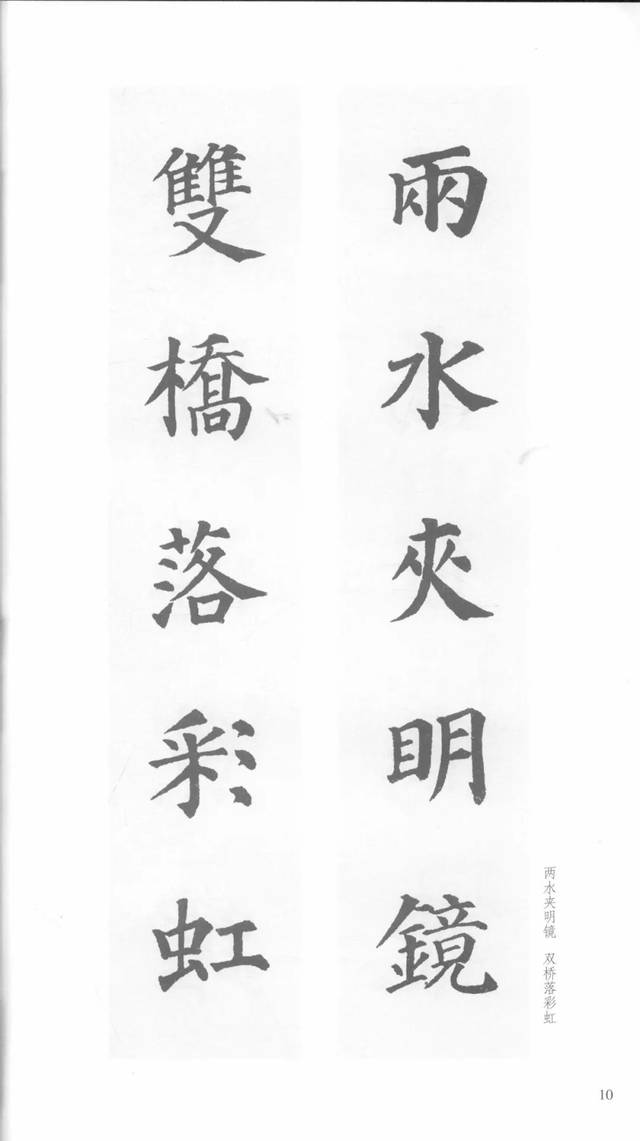 兩水夾明鏡
雙橋落彩虹
两水夹明镜 双桥落彩虹
10